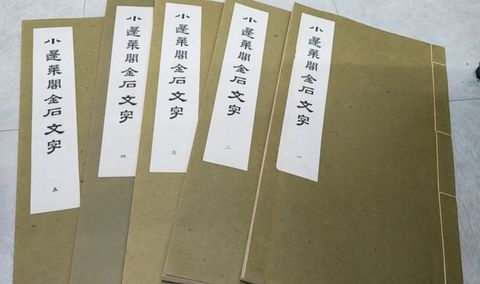 小蓬萊閣金石文字
五
小蓬萊閣金石文字
四
小蓬萊閣金石文字
三
小蓬萊閣金石文字
二
小蓬萊閣金石文字
一